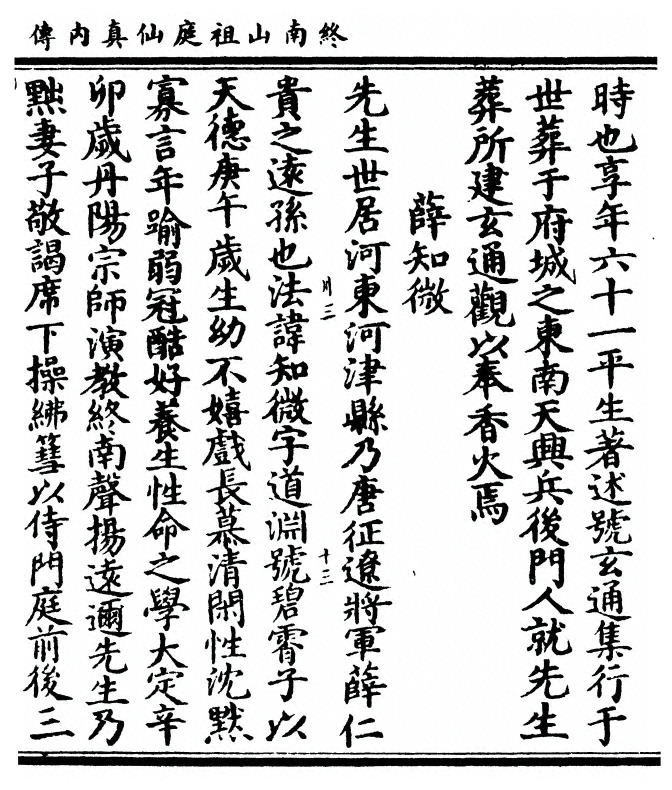 終南山祖庭仙真内傳
時也享年六十一平生著述號玄通集行于
世葬于府城之東南天興兵後門人就先生
葬所建玄通觀以奉香火焉
薛知微
先生世居河東河津縣乃唐征遼將軍薛仁
川三
十三
貴之遠孫也法諱知微字道淵號碧霄子以
天德庚午歲生幼不嬉戲長慕清閑性沈默
寡言年踰弱冠酷好養生性命之學大定辛
卯歲丹陽宗師演教終南聲揚遠邇先生乃
黜妻子敬謁席下操紼篲以侍門庭前後三